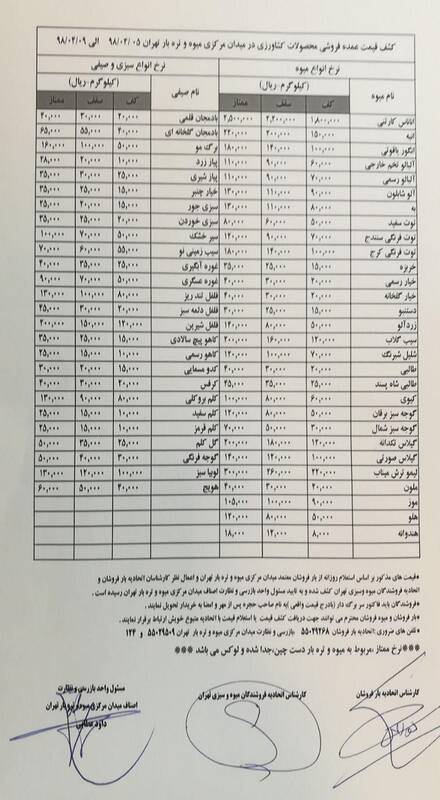 کشف قیمت عمده فروشی محصولات کشاورزی در میدان مرکزی میوه و تره بار تهران ۹۸/۰۳/۰۵ الی ۹۸/۰۳/۰۹
نرخ انواع میوه نرخ انواع سبزی و صیفی
نام میوه (کیلوگرم-ریال) نام صیفی (کیلوگرم-ریال)
کف سقف ممتاز کف سقف ممتاز
آناناس کارتنی ۱,۸۰۰,۰۰۰ ۲,۲۰۰,۰۰۰ ۲,۵۰۰,۰۰۰ بادمجان قلمی ۲۰,۰۰۰ ۳۰,۰۰۰ ۴۰,۰۰۰
انبه ۱۵۰,۰۰۰ ۲۰۰,۰۰۰ ۲۲۰,۰۰۰ بادمجان گلخانه ای ۴۰,۰۰۰ ۵۵,۰۰۰ ۶۵,۰۰۰
انگور یاقوتی ۱۰۰,۰۰۰ ۱۴۰,۰۰۰ ۱۸۰,۰۰۰ برگ مو ۵۰,۰۰۰ ۱۰۰,۰۰۰ ۱۶۰,۰۰۰
آلبالو تخم خارجی ۶۰,۰۰۰ ۹۰,۰۰۰ ۱۱۰,۰۰۰ پیاز زرد ۱۰,۰۰۰ ۲۰,۰۰۰ ۲۸,۰۰۰
آلبالو رسمی ۷۰,۰۰۰ ۹۰,۰۰۰ ۱۱۰,۰۰۰ پیاز شیری ۲۵,۰۰۰ ۳۰,۰۰۰ ۳۵,۰۰۰
آلو شابلون ۹۰,۰۰۰ ۱۱۰,۰۰۰ ۱۳۰,۰۰۰ خیار چنبر ۱۵,۰۰۰ ۲۵,۰۰۰ ۳۵,۰۰۰
به ۸۰,۰۰۰ ۱۱۰,۰۰۰ ۱۳۰,۰۰۰ سبزی جور ۱۵,۰۰۰ ۲۰,۰۰۰ ۲۵,۰۰۰
توت سفید ۵۰,۰۰۰ ۶۰,۰۰۰ ۸۰,۰۰۰ سبزی خوردن ۲۰,۰۰۰ ۲۵,۰۰۰ ۳۵,۰۰۰
توت فرنگی سنندج ۷۰,۰۰۰ ۹۰,۰۰۰ ۱۲۰,۰۰۰ سیر خشک ۵۰,۰۰۰ ۷۰,۰۰۰ ۱۰۰,۰۰۰
توت فرنگی کرج ۱۰۰,۰۰۰ ۱۴۰,۰۰۰ ۱۸۰,۰۰۰ سیب زمینی نو ۵۵,۰۰۰ ۶۰,۰۰۰ ۷۰,۰۰۰
خربزه ۱۵,۰۰۰ ۲۵,۰۰۰ ۳۵,۰۰۰ غوره آبگیری ۲۵,۰۰۰ ۳۵,۰۰۰ ۴۰,۰۰۰
خیار رسمی ۲۰,۰۰۰ ۳۰,۰۰۰ ۴۰,۰۰۰ غوره عسگری ۵۰,۰۰۰ ۷۰,۰۰۰ ۹۰,۰۰۰
خیار گلخانه ۲۰,۰۰۰ ۳۰,۰۰۰ ۴۰,۰۰۰ فلفل تند ریز ۸۰,۰۰۰ ۱۰۰,۰۰۰ ۱۳۰,۰۰۰
دستنبو ۱۵,۰۰۰ ۲۵,۰۰۰ ۳۰,۰۰۰ فلفل دلمه سبز ۲۰,۰۰۰ ۳۰,۰۰۰ ۴۵,۰۰۰
زردآلو ۵۰,۰۰۰ ۸۰,۰۰۰ ۱۴۰,۰۰۰ فلفل شیرین ۱۲۰,۰۰۰ ۱۵۰,۰۰۰ ۲۰۰,۰۰۰
سیب گلاب ۱۲۰,۰۰۰ ۱۶۰,۰۰۰ ۲۰۰,۰۰۰ کاهو پیچ سالادی ۱۵,۰۰۰ ۲۵,۰۰۰ ۳۵,۰۰۰
شلیل شبرنگ ۷۰,۰۰۰ ۱۰۰,۰۰۰ ۱۲۰,۰۰۰ کاهو رسمی ۱۰,۰۰۰ ۱۵,۰۰۰ ۲۵,۰۰۰
طالبی ۲۰,۰۰۰ ۳۰,۰۰۰ ۴۰,۰۰۰ کدو مسمایی ۱۵,۰۰۰ ۲۰,۰۰۰ ۳۰,۰۰۰
طالبی شاه پسند ۲۵,۰۰۰ ۳۵,۰۰۰ ۴۵,۰۰۰ کرفس ۲۰,۰۰۰ ۳۰,۰۰۰ ۴۰,۰۰۰
کیوی ۶۰,۰۰۰ ۸۰,۰۰۰ ۱۰۰,۰۰۰ کلم بروکلی ۸۰,۰۰۰ ۹۰,۰۰۰ ۱۳۰,۰۰۰
گوجه سبز برقان ۵۰,۰۰۰ ۸۰,۰۰۰ ۱۲۰,۰۰۰ کلم سفید ۱۰,۰۰۰ ۱۵,۰۰۰ ۲۵,۰۰۰
گوجه سبز شمال ۳۰,۰۰۰ ۵۰,۰۰۰ ۷۰,۰۰۰ کلم قرمز ۱۰,۰۰۰ ۱۵,۰۰۰ ۲۵,۰۰۰
گیلاس تکدانه ۱۲۰,۰۰۰ ۱۸۰,۰۰۰ ۲۰۰,۰۰۰ گل کلم ۲۵,۰۰۰ ۳۵,۰۰۰ ۵۰,۰۰۰
گیلاس صورتی ۱۰۰,۰۰۰ ۱۲۰,۰۰۰ ۱۴۰,۰۰۰ گوجه فرنگی ۳۰,۰۰۰ ۴۰,۰۰۰ ۵۰,۰۰۰
لیمو ترش میناب ۲۲۰,۰۰۰ ۲۶۰,۰۰۰ ۳۰۰,۰۰۰ لوبیا سبز ۱۰۰,۰۰۰ ۱۲۰,۰۰۰ ۱۳۰,۰۰۰
ملون ۲۰,۰۰۰ ۳۰,۰۰۰ ۴۰,۰۰۰ هویج ۴۰,۰۰۰ ۵۰,۰۰۰ ۶۰,۰۰۰
موز ۹۰,۰۰۰ ۱۰۰,۰۰۰ ۱۰۵,۰۰۰
هلو ۵۰,۰۰۰ ۸۰,۰۰۰ ۱۲۰,۰۰۰
هندوانه ۸,۰۰۰ ۱۲,۰۰۰ ۱۸,۰۰۰
*قیمت های مذکور بر اساس استعلام روزانه از بار فروشان معتمد میدان مرکزی میوه و تره بار تهران و اعمال نظر کارشناسان اتحادیه بار فروشان و
اتحادیه فروشندگان میوه وسبزی تهران کشف شده و به تایید مسئول واحد بازرسی و نظارت اصناف میدان مرکزی میوه و تره بار تهران رسیده است .
*فروشندگان باید فاکتور سر برگ دار (بادرج قیمت واقعی )به نام صاحب حجره پس از مهر و امضا به خریدار تحویل نمایند.
*بار فروشان و میوه فروشان محترم می توانند جهت دریافت کشف قیمت یا استعلام قیمت با اتحادیه متبوع خویش ارتباط برقرار نمایند.
* تلفن های ضروری :اتحادیه بار فروشان ۵۵۰۴۹۲۴۸ بازرسی و نظارت میدان مرکزی میوه و تره بار تهران ۵۵۰۲۹۵۰۹ و ۱۲۴
***نرخ ممتاز ،مربوط به میوه و تره بار دست چین،جدا شده و لوکس می باشد ***
کارشناس اتحادیه بار فروشان
کارشناس اتحادیه فروشندگان میوه و سبزی تهران
مسئول واحد بازرسی و نظارت
اصناف میدان مرکزی میوه و تره بار تهران
داود